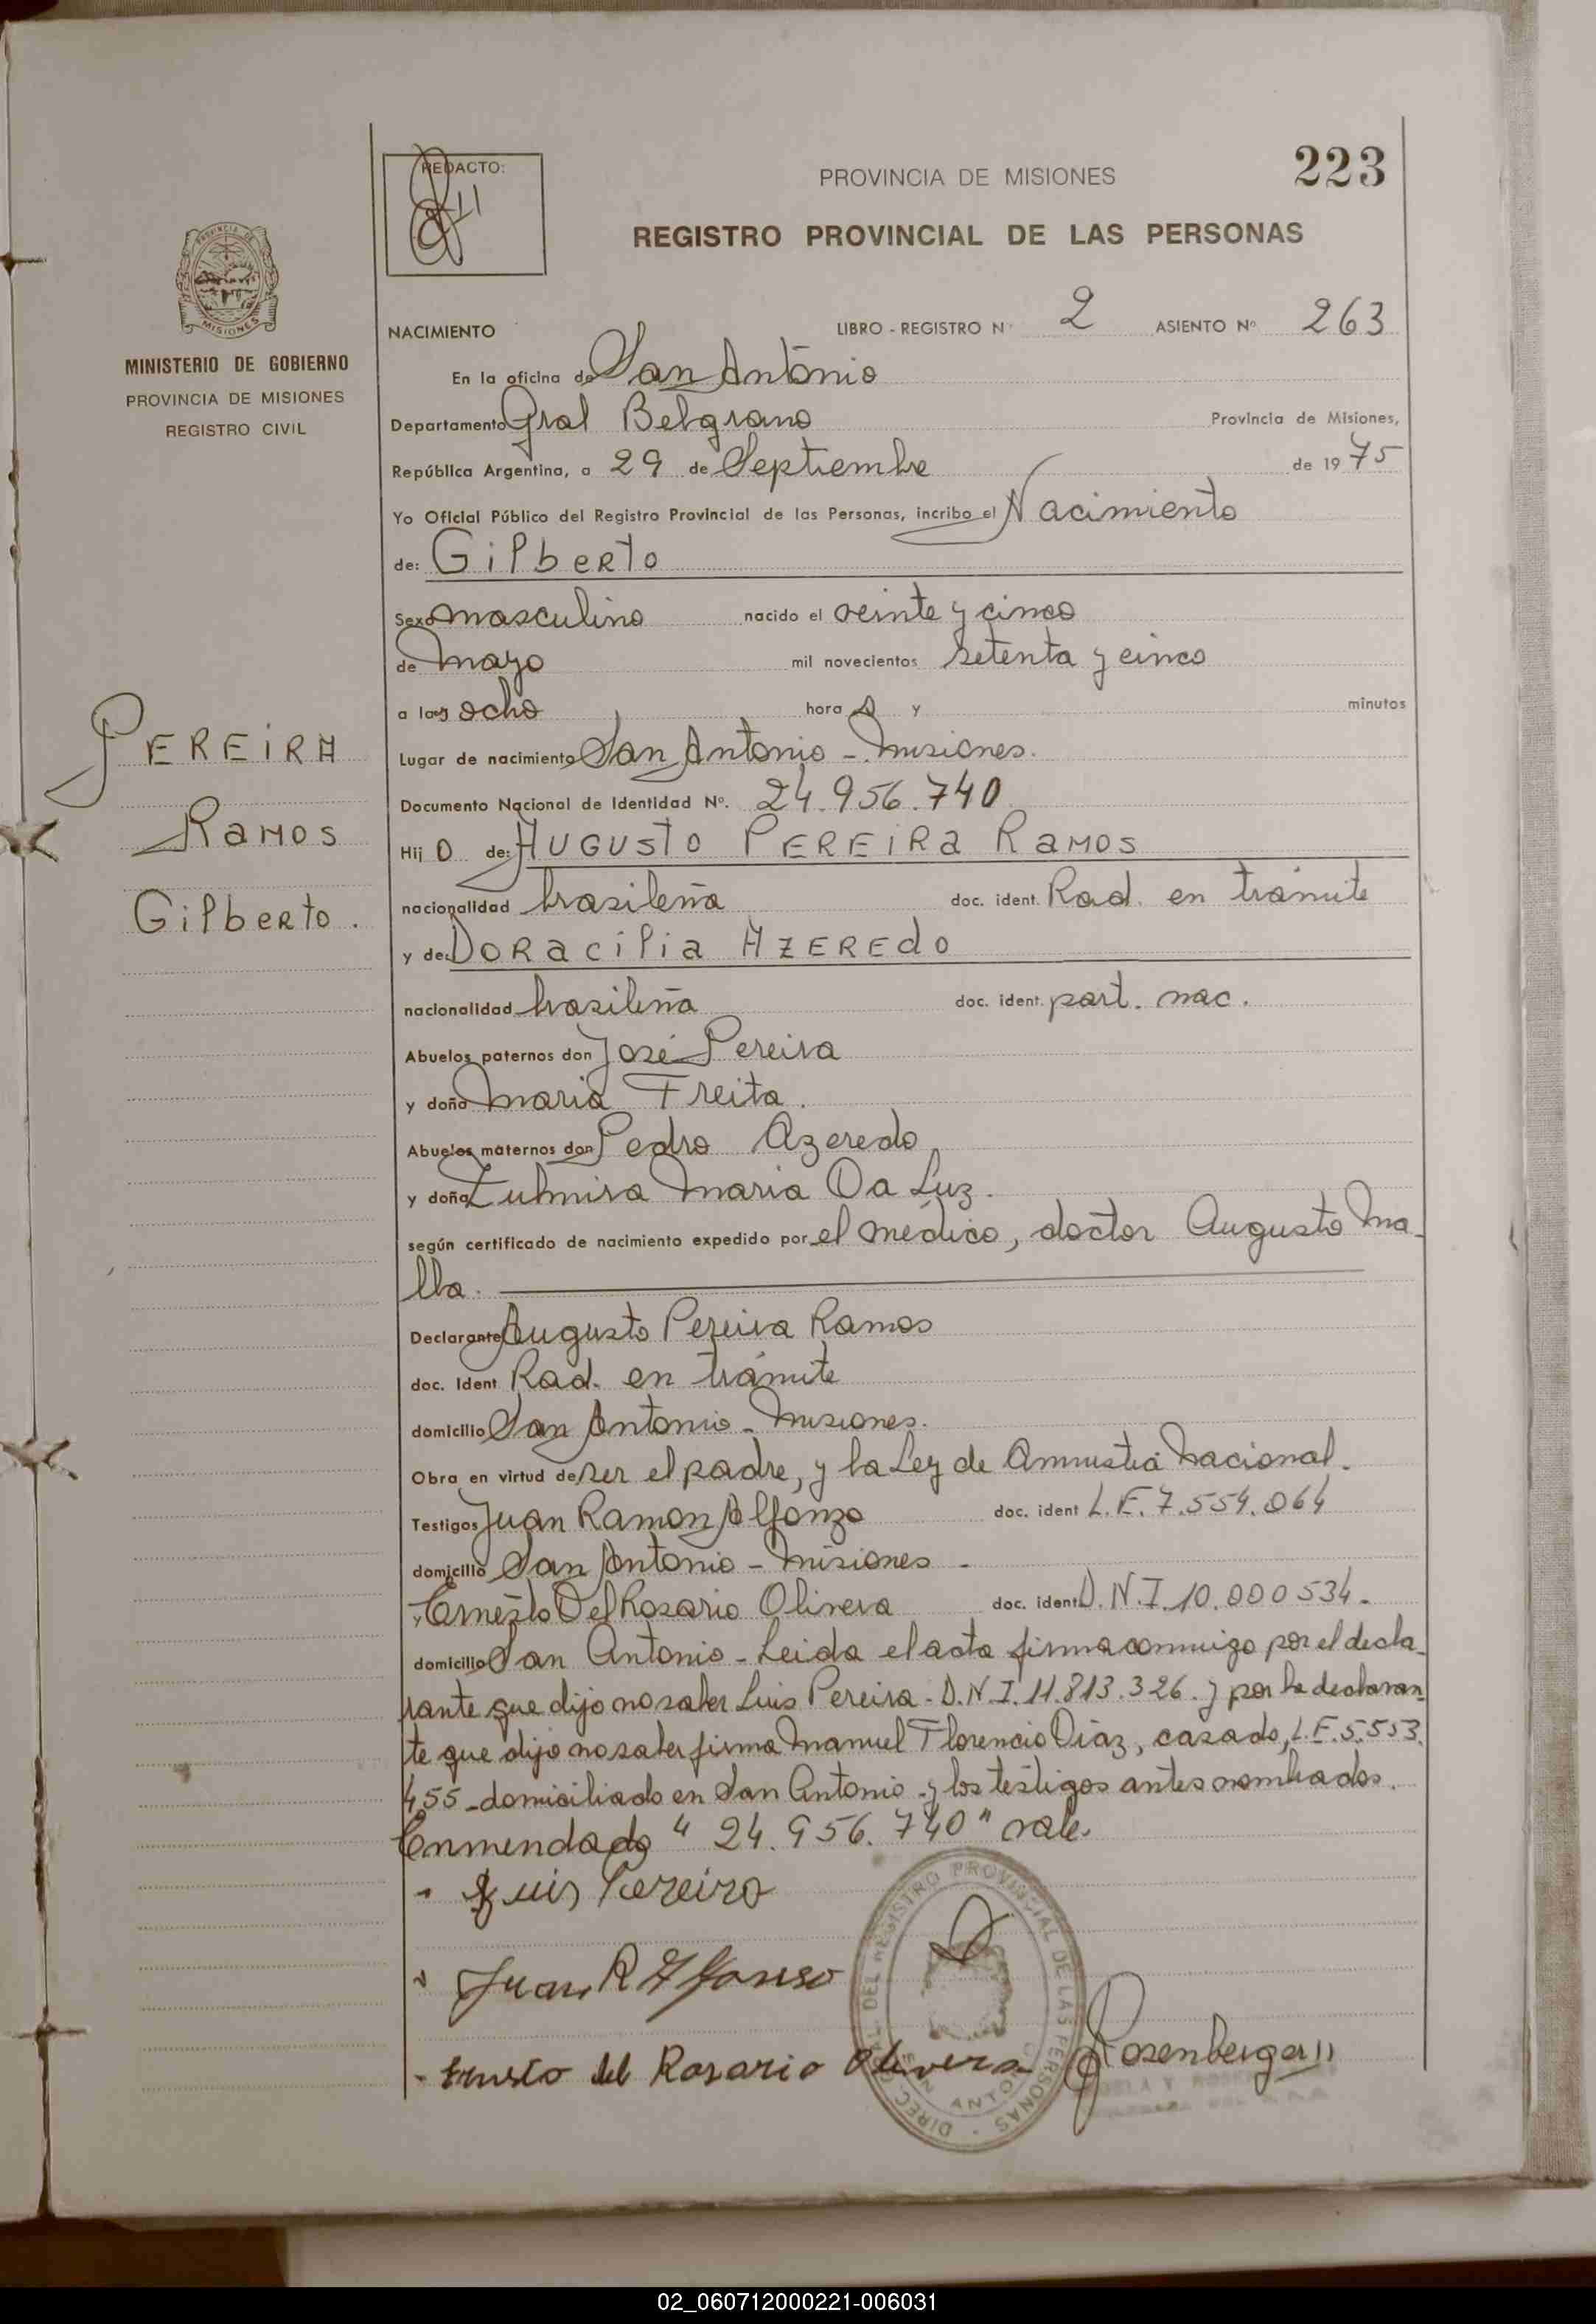 REDACTO:
PROVINCIA DE MISIONES
223
REGISTRO PROVINCIAL DE LAS PERSONAS
MISIONES
MINISTERIO DE GOBIERNO
PROVINCIA DE MISIONES
REGISTRO CIVIL
NACIMIENTO LIBRO - REGISTRO Nº 2 ASIENTO Nº 263
En la oficina de San Antonio
Departamento Gral Belgrano Provincia de Misiones,
República Argentina, a 29 de Septiembre de 1975
Yo Oficial Público del Registro Provincial de las Personas, incribo el Nacimiento
de: Gilberto
Sexo masculino nacido el veinte y cinco
de mayo mil novecientos setenta y cinco
a las ocho hora s y minutos
Lugar de nacimiento San Antonio - Misiones.
Documento Nacional de Identidad Nº. 24.956.740
Hij o de: Augusto PEREIRa Ramos
nacionalidad brasileña doc. ident. Rad. en trámite
y de: Doracilia AZEREdo
nacionalidad brasileña doc. ident. part. nac.
Abuelos paternos don José Pereira
y doña Maria Freita.
Abuelos maternos don Pedro Azeredo
y doña Zulmira Maria Da Luz.
según certificado de nacimiento expedido por el médico, doctor Augusto Ma-
lla.
Declarante Augusto Pereira Ramos
doc. Ident Rad. en trámite
domicilio San Antonio - Misiones.
Obra en virtud de ser el padre, y la Ley de Amnistia Nacional.
Testigos Juan Ramon Alfonzo doc. ident L.E. 7.554.064
domicilio San Antonio - Misiones -
y Ernesto Del Rosario Olivera doc. ident D.N.I. 10.000534.
domicilio San Antonio - Leida el acta firma conmigo por el decla-
rante que dijo no saber Luis Pereira - D.N.I. 11.813.326. y por la declaran-
te que dijo no saber firma Manuel Florencio Diaz, casado, L.E. 5.553.
455 - domiciliado en San Antonio - y los testigos antes nombrados.
Enmendado "24.956.740" vale.
PEREIRA
Ramos
Gilberto.
Luis Pereira
Juan R Alfonso
Ernesto del Rosario Olivera
Rosenberger
DIREC. GRAL. DEL REGISTRO PROVINCIAL DE LAS PERSONAS
SAN ANTONIO
02_060712000221-006031